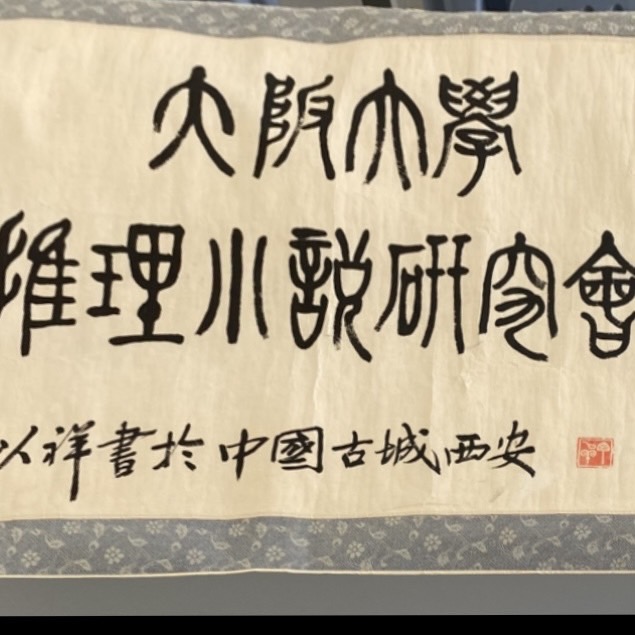 大阪大學
推理小説研究會
以祥書於中國古城西安